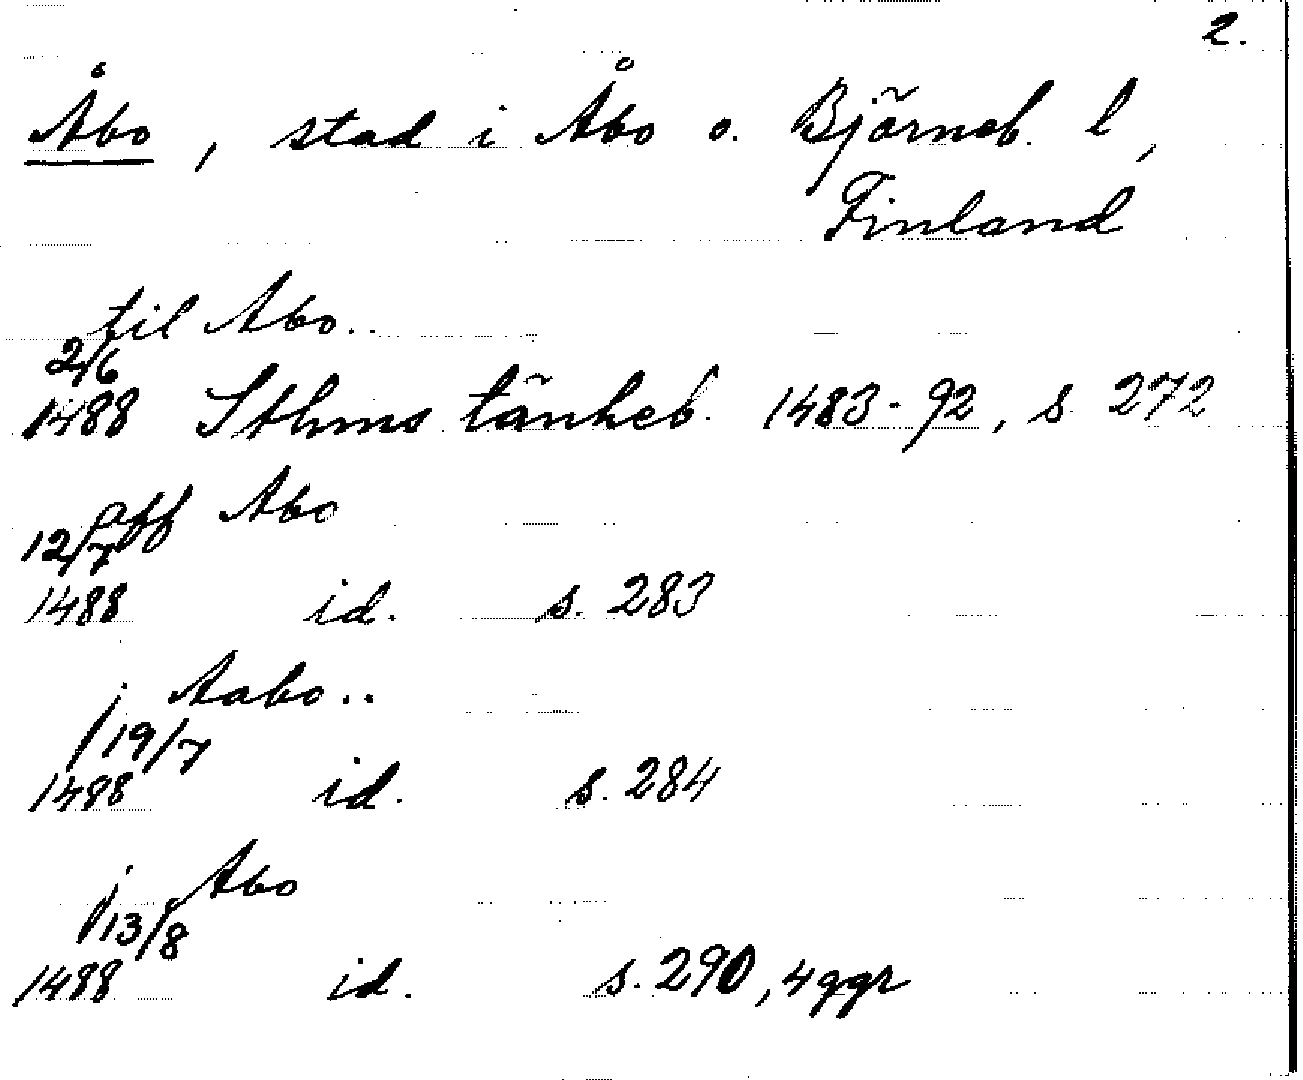 2.
Åbo, stad i Åbo o. Björneb. l,
Finland
til Abo..
2/6
1488 Sthms tänkeb. 1483-92, s 272
aff Abo
12/7
1488 id. s. 283
j Aabo..
19/7
1488 id. s. 284
j Abo
13/8
1488 id. s. 290, 4 ggr